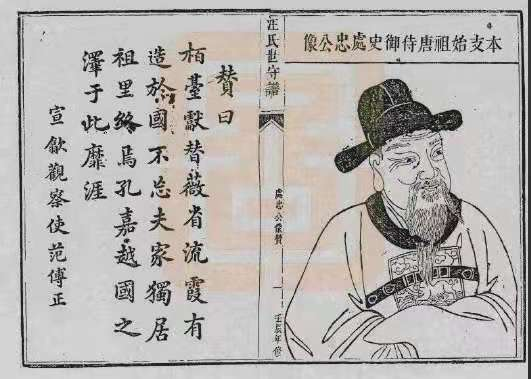 本支始祖唐侍御史處忠公像
汪氏世守譜
處忠公像贊
一
壬辰年修
贊曰
栢臺獻替薇省流霞有
造於國不忘夫家獨居
祖里終焉孔嘉越國之
澤于此靡涯
宣歙觀察使范傅正